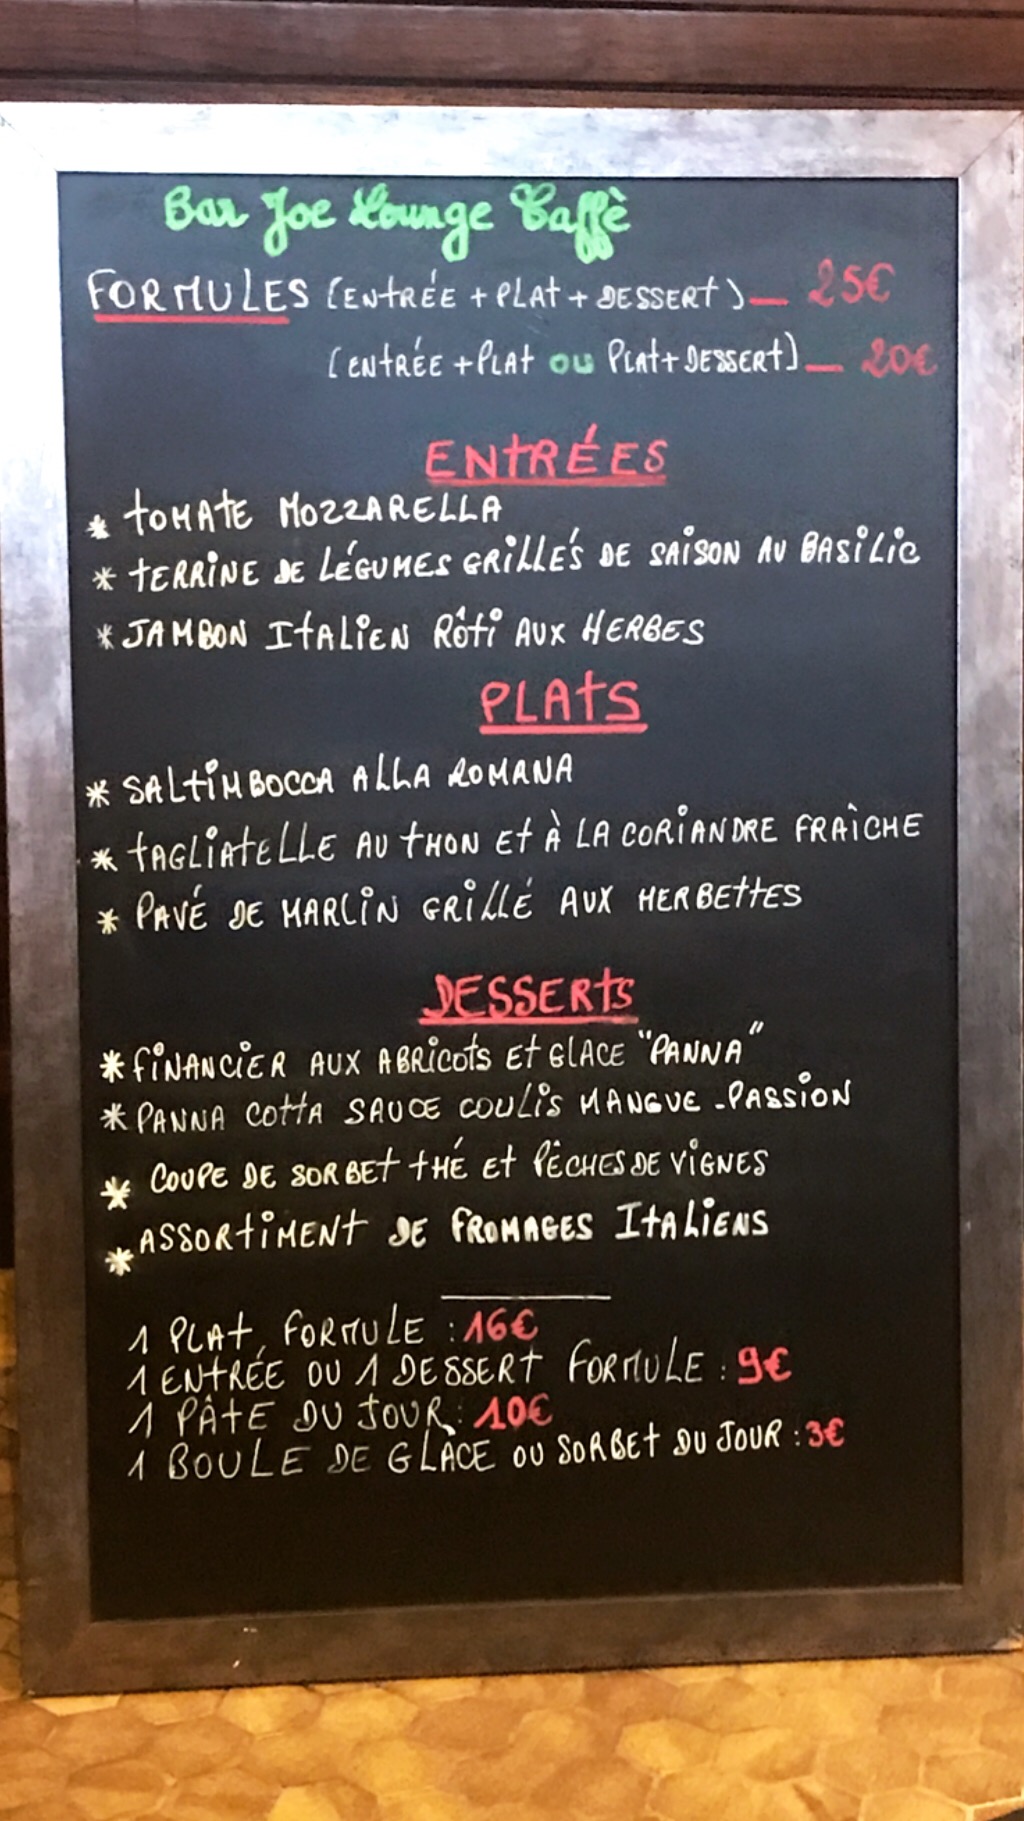 Bar Joe Lounge Caffè
FORMULES (ENTRÉE + PLAT + DESSERT) — 25€
(ENTRÉE + PLAT OU PLAT + DESSERT) — 20€
ENTRÉES
* TOMATE MOZZARELLA
* TERRINE DE LÉGUMES GRILLÉS DE SAISON AU BASILIC
* JAMBON ITALIEN RÔTI AUX HERBES
PLATS
* SALTIMBOCCA ALLA ROMANA
* TAGLIATELLE AU THON ET À LA CORIANDRE FRAÎCHE
* PAVÉ DE MARLIN GRILLÉ AUX HERBETTES
DESSERTS
* FINANCIER AUX ABRICOTS ET GLACE "PANNA"
* PANNA COTTA SAUCE COULIS MANGUE - PASSION
* COUPE DE SORBET THÉ ET PÊCHES DE VIGNES
* ASSORTIMENT DE FROMAGES ITALIENS
1 PLAT, FORMULE : 16€
1 ENTRÉE OU 1 DESSERT FORMULE : 9€
1 PÂTE DU JOUR : 10€
1 BOULE DE GLACE OU SORBET DU JOUR : 3€